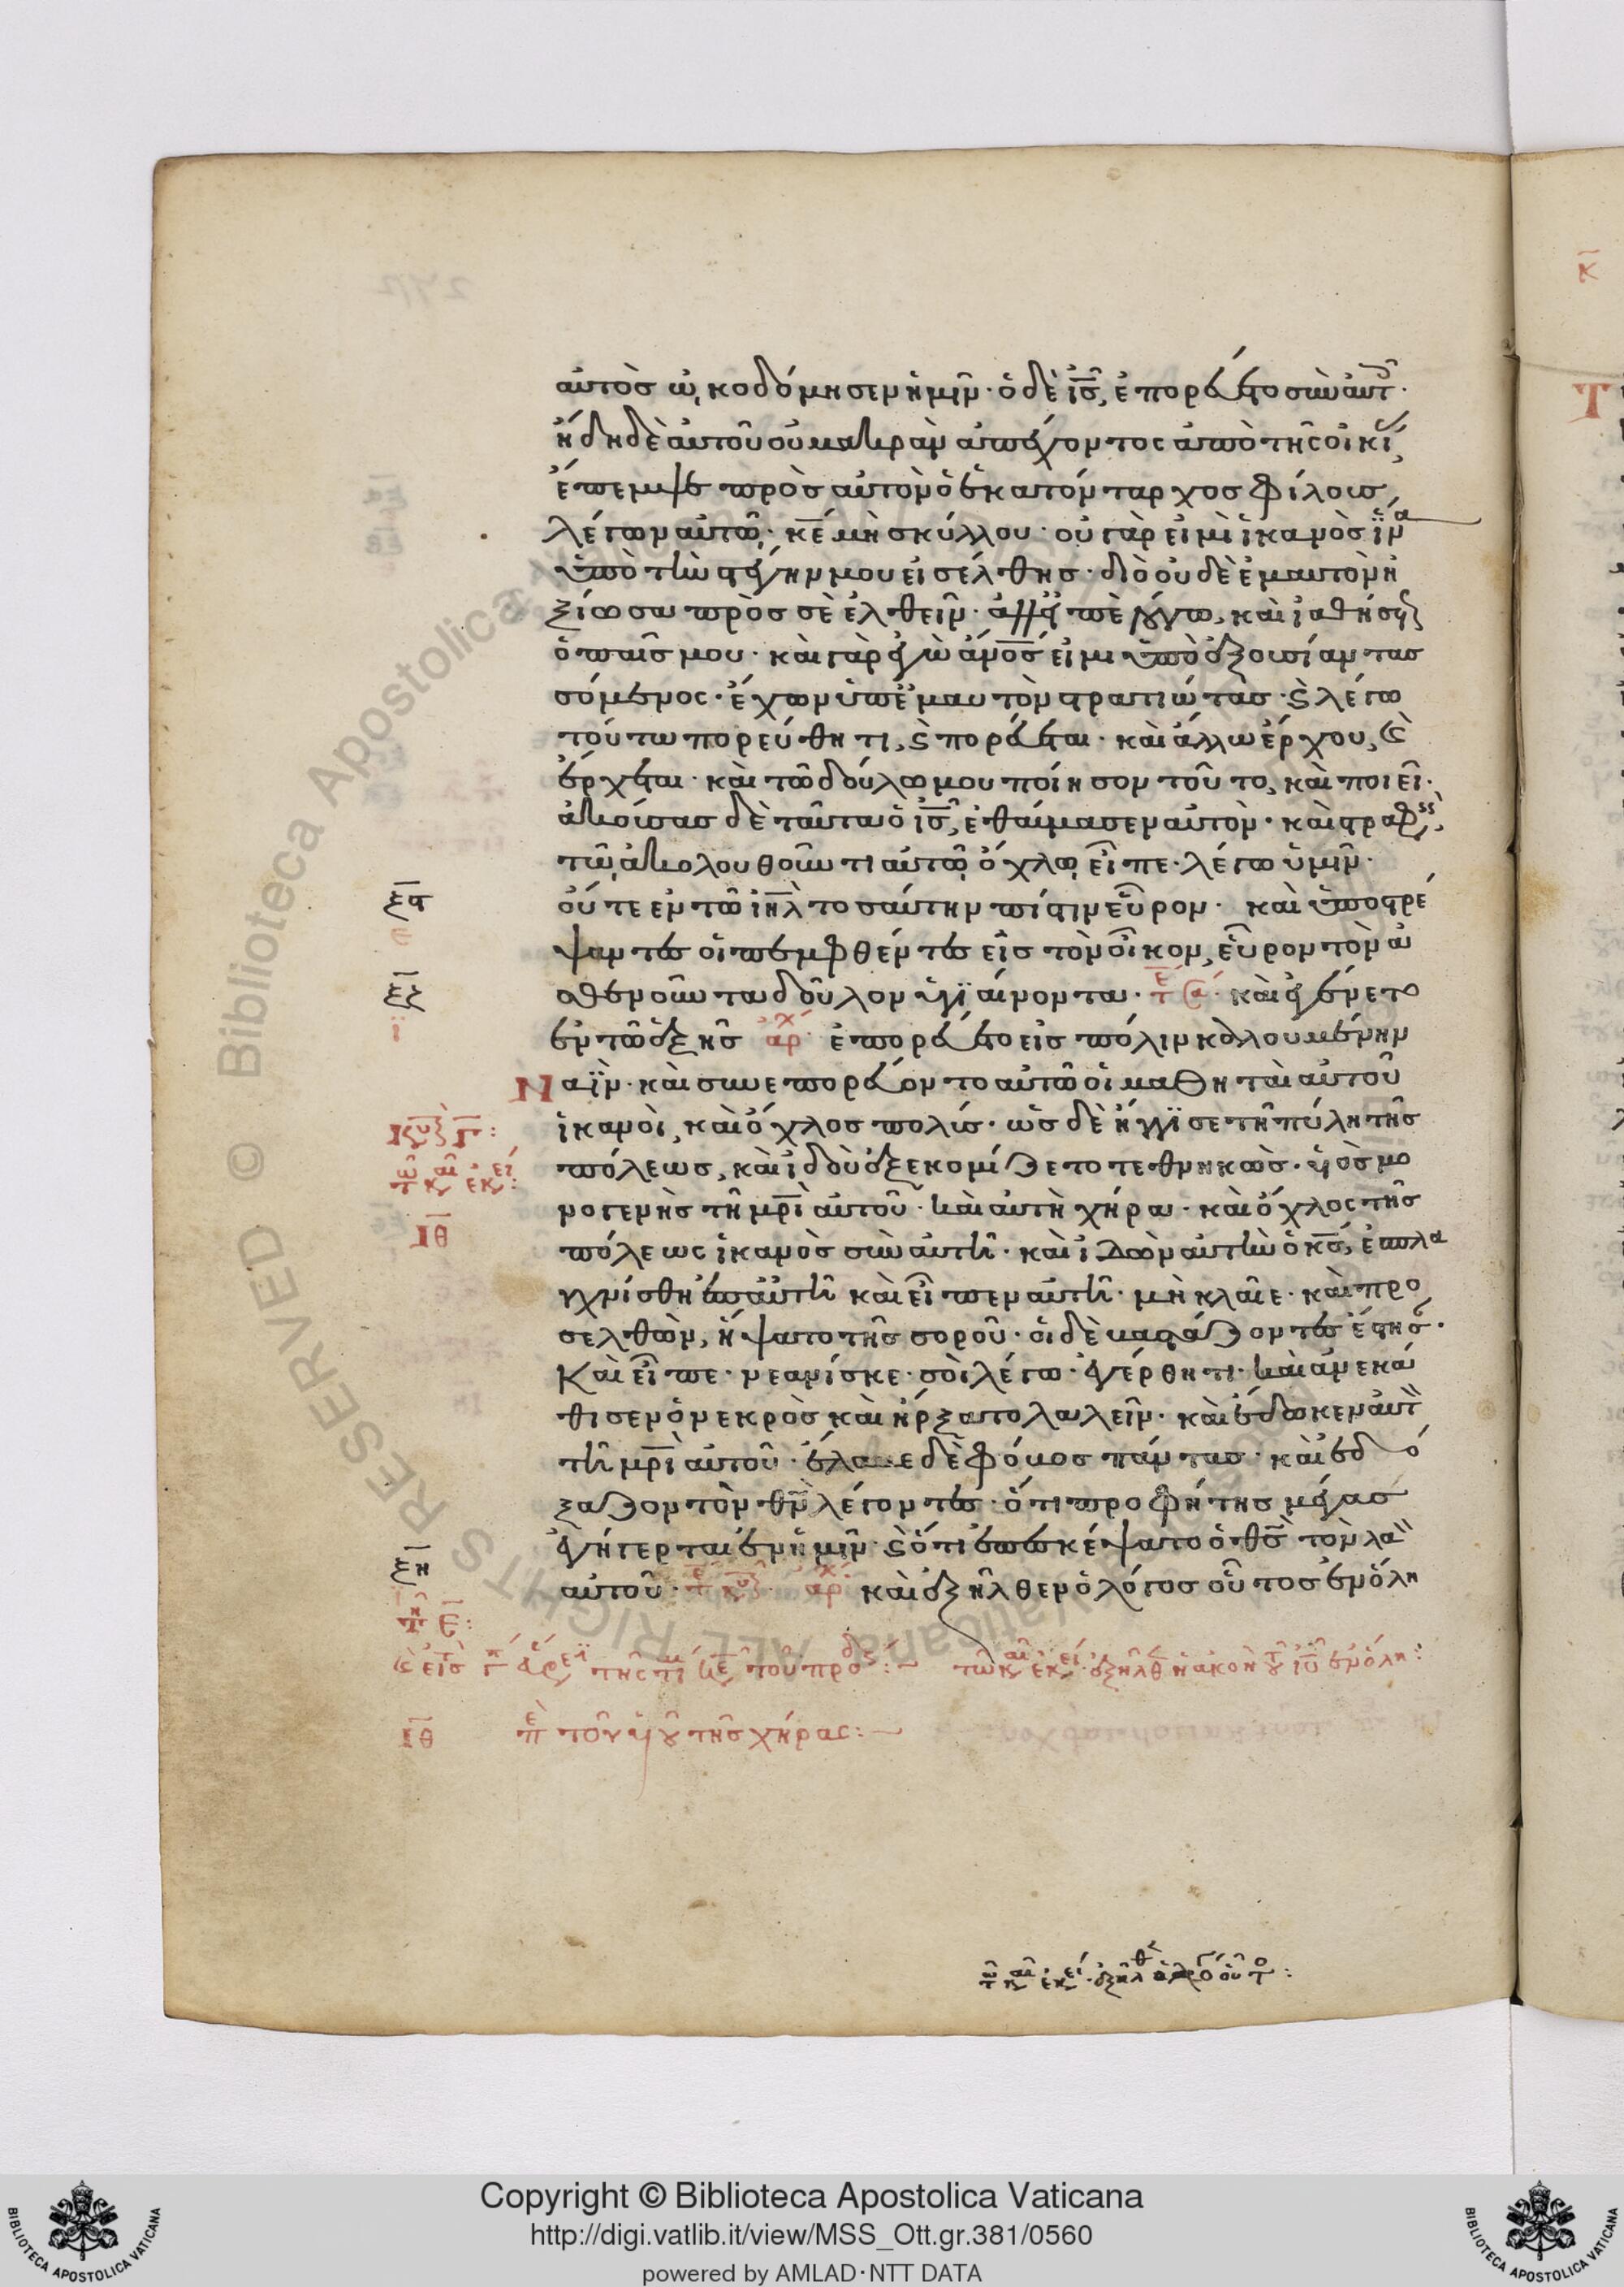 αὐτὸς ὠκοδόμησεν ἡμῖν· ὁ δὲ ἰς̅, ἐπορεύετο σὺν αὐτ·
ἤδη δὲ αὐτοῦ οὐ μακρὰν ἀπέχοντος ἀπὸ τῆς οἰκί,
ἔπεμψε πρὸς αὐτὸν ὁ ἑκατόνταρχος φίλους,
λέγων αὐτῶ· κ̅ε̅ μὴ σκύλλου· οὐ γάρ εἰμὶ ἱκανὸς ἵνα
ὑπὸ τὴν στέγην μου εἰσέλθης· διὸ οὐδὲ ἐμαυτὸν ἠ
ξίωσα πρὸς σὲ ἐλθεῖν· ἀλλ' εἰπὲ λόγω, καὶ ἰαθήσεται
ὁ παῖς μου· καὶ γὰρ ἐγὼ ἄν̅ο̅ς̅ εἰμι ὑπὸ ἐξουσίαν τασ
σόμενος· ἔχων ὑπ' ἐμαυτὸν στρατιώτας· ϗ λέγω
τούτω πορεύθητι, ϗ πορεύεται· καὶ ἄλλω ἔρχου, ϗ
ἔρχεται· καὶ τῶ δούλω μου ποίησον τοῦτο, καὶ ποιεῖ·
ἀκούσας δὲ ταῦτα ὁ ἰς̅, ἐθαύμασεν αὐτὸν· καὶ στραφεὶς,
τῶ ἀκολουθοῦντι αὐτῶ ὄχλω εἶπε· λέγω ὑμῖν·
οὔτε ἐν τῶ ἰη̅λ̅ τοσαύτην πίστιν εὗρον· καὶ ὑποστρέ
ψαντες οἱ πεμφθέντες εἰς τὸν οἶκον, εὗρον τὸν ἀ
σθενοῦντα δοῦλον ὑγιαίνοντα· καὶ ἐγένετο
ἐν τῶ ἑξῆς ἀρχ ἐπορεύετο εἰς πόλιν καλουμένην
Ναΐν· καὶ συνεπορεύοντο αὐτῶ οἱ μαθηταὶ αὐτοῦ
ἱκανοὶ, καὶ ὄχλος πολύς· ὡς δὲ ἤγγισε τῆ πύλη τῆς
πόλεως, καὶ ἰδοὺ ἐξεκομίζετο τεθνηκὼς· υἱὸς μο
νογενὴς τῆ μ̅ρ̅ὶ αὐτοῦ· καὶ αὐτὴ χήρα· καὶ ὄχλος τῆς
πόλεως ἱκανὸς σὺν αὐτῆ· καὶ ἰδὼν αὐτὴν ὁ κ̅ς̅, ἐσπλα
γχνίσθη ἐπ' αὐτῆ καὶ εἶπεν αὐτῆ· μὴ κλαῖε· καὶ προ
σελθὼν, ἥψατο τῆς σοροῦ· οἱ δὲ βαστάζοντες ἔστησ·
Καὶ εἶπε· νεανίσκε· σοὶ λέγω· ἐγέρθητι· καὶ ἀνεκά
θισεν ὁ νεκρὸς καὶ ἤρξατο λαλεῖν· καὶ ἔδωκεν αὐτὸν
τῆ μ̅ρ̅ὶ αὐτοῦ· ἔλαβε δὲ φόβος πάντας· καὶ ἐδό
ξαζον τὸν θ̅ν̅ λέγοντες· ὅτι προφήτης μέγας
ἐγήγερται ἐν ἡμῖν· ϗ ὅτι ἐπεσκέψατο ὁ θ̅ς̅ τὸν λαὸν
αὐτοῦ· ἀρχ καὶ ἐξῆλθεν ὁ λόγος οὗτος ἐν ὅλη
ξζ
ξη
ΙΘ
ΙΘ πε τοῦ υἱοῦ τῆς χήρας:
Copyright © Biblioteca Apostolica Vaticana
http://digi.vatlib.it/view/MSS_Ott.gr.381/0560
powered by AMLAD·NTT DATA
BIBLIOTECA APOSTOLICA VATICANA
BIBLIOTECA APOSTOLICA VATICANA